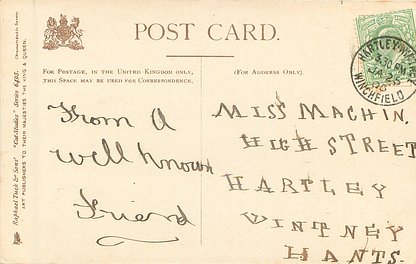 POST CARD.
FOR POSTAGE, IN THE UNITED KINGDOM ONLY,
THIS SPACE MAY BE USED FOR CORRESPONDENCE.
(FOR ADDRESS ONLY.)
From a
well known
Friend
MISS MACHIN.
HIGH STREET
HARTLEY
WINTNEY
HANTS.
HARTLEY
WINCHFIELD
Raphael Tuck & Sons'
ART PUBLISHERS TO THEIR MAJESTIES THE KING & QUEEN.